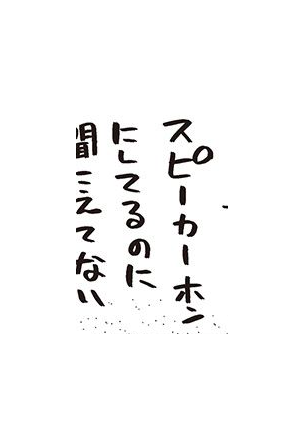 スピーカーホン
にしてるのに
聞こえてない